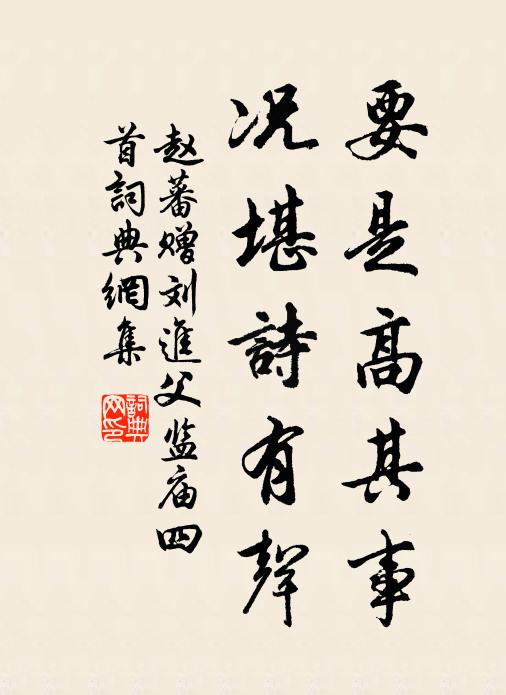 要是高其事
况堪詩有聲
赵蕃赠刘進父监庙四
首詞典網集
詞典
网印